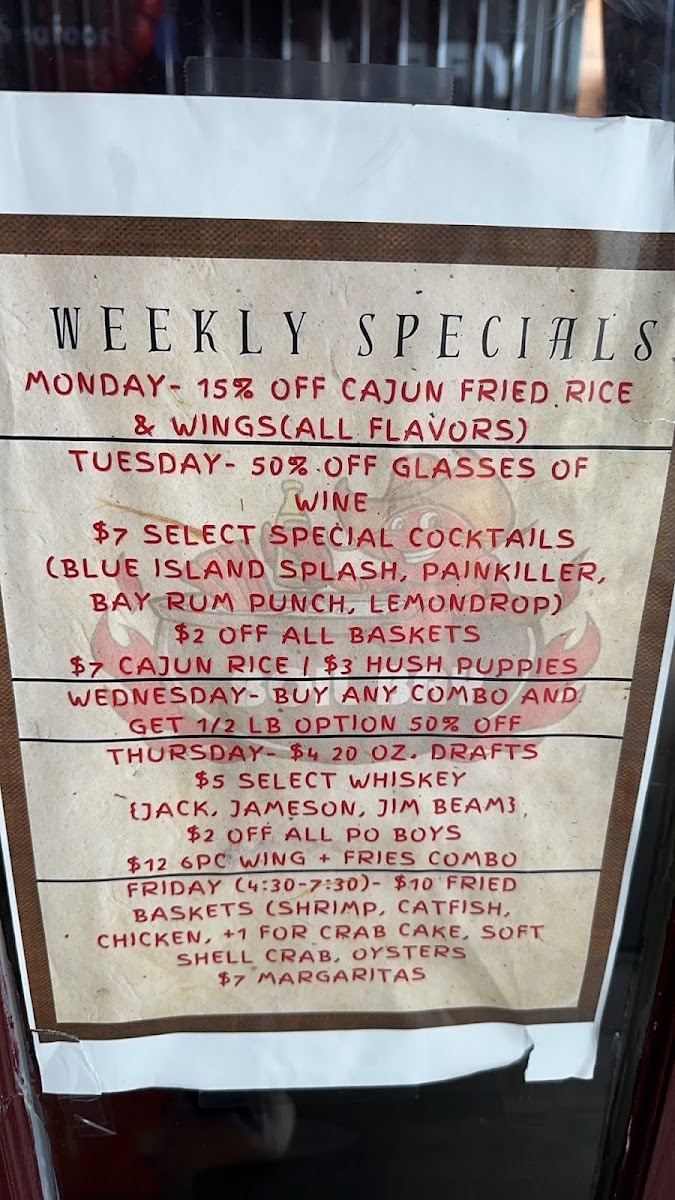 WEEKLY SPECIALS
MONDAY- 15% OFF CAJUN FRIED RICE
& WINGS(ALL FLAVORS)
TUESDAY- 50% OFF GLASSES OF
WINE
$7 SELECT SPECIAL COCKTAILS
(BLUE ISLAND SPLASH, PAINKILLER,
BAY RUM PUNCH, LEMONDROP)
$2 OFF ALL BASKETS
$7 CAJUN RICE | $3 HUSH PUPPIES
WEDNESDAY- BUY ANY COMBO AND
GET 1/2 LB OPTION 50% OFF
THURSDAY- $4 20 OZ. DRAFTS
$5 SELECT WHISKEY
{JACK, JAMESON, JIM BEAM}
$2 OFF ALL PO BOYS
$12 6PC WING + FRIES COMBO
FRIDAY (4:30-7:30)- $10 FRIED
BASKETS (SHRIMP, CATFISH,
CHICKEN, +1 FOR CRAB CAKE, SOFT
SHELL CRAB, OYSTERS
$7 MARGARITAS